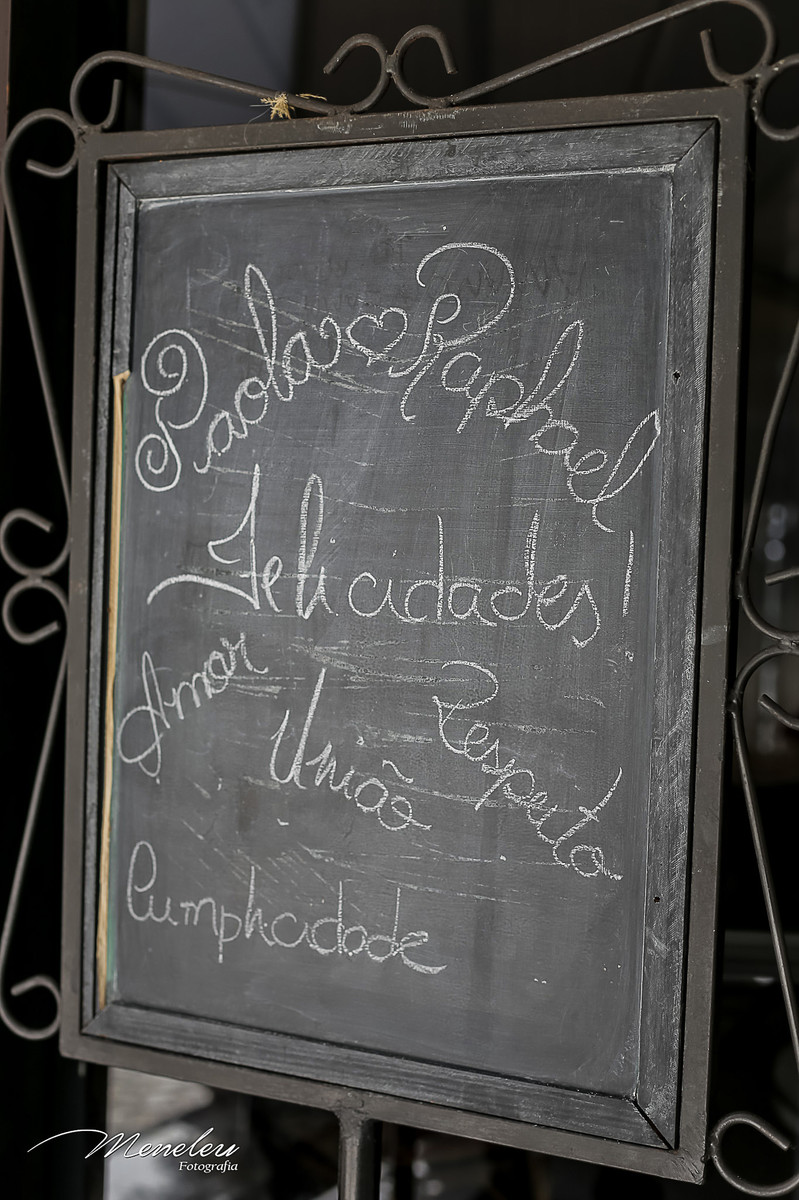 Paola ♡ Raphael
Felicidades!
Amor
União
Respeito
Cumplicidade
Meneleu
Fotografia